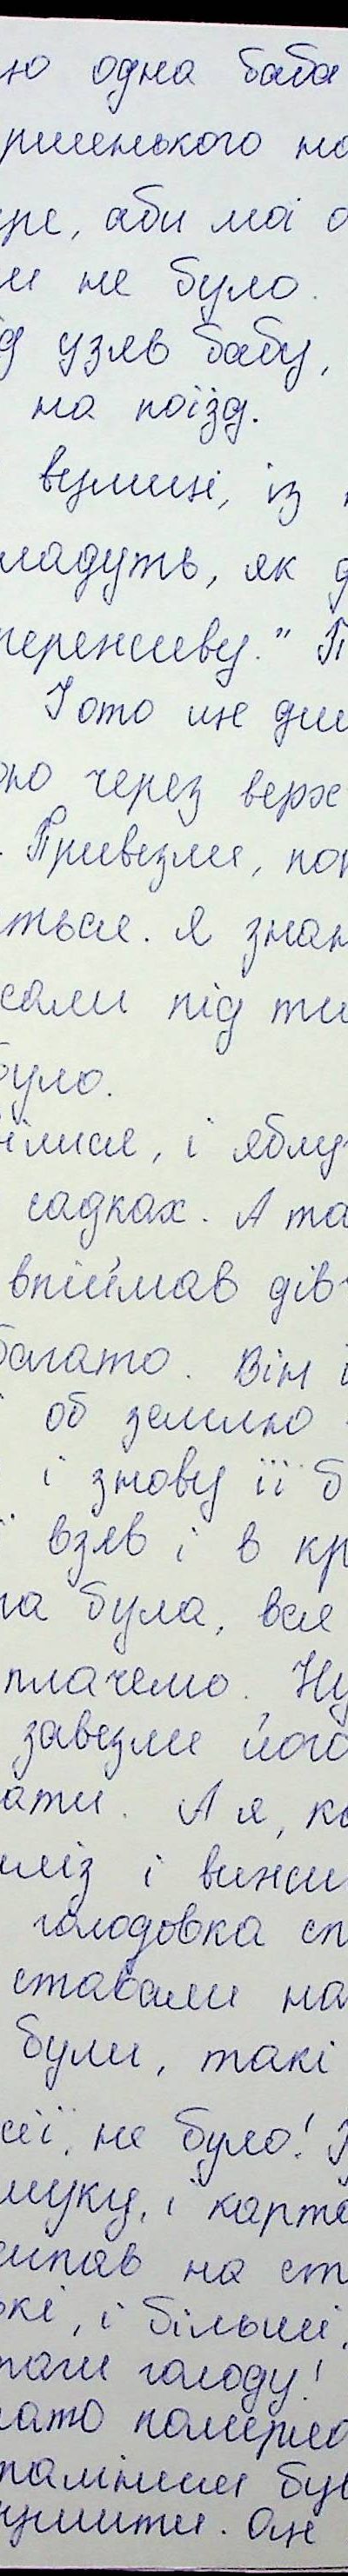 ю одна баба
ршенького
ре, аби мої
и не було.
д узяв бабу,
на поїзд.
вулиці, із
ладуть, як
переживу."
Tото ще
через верх
. Привезли,
ться. Я
сали під
було.
нілися, і яблу
садках. А та
впіймав дів
багато. Він
об землю
і знову її б
взяв і в кр
на була, вся
плачемо. Ну
завезли його
ати. А я, ко
иліз і вижи
голодовка сп
ставали на
були, такі
сії, не було!
муку, і карто
сипав на ст
кі, і більші,
паги голоду!
гато помирло
таліним був
ушити. Оце